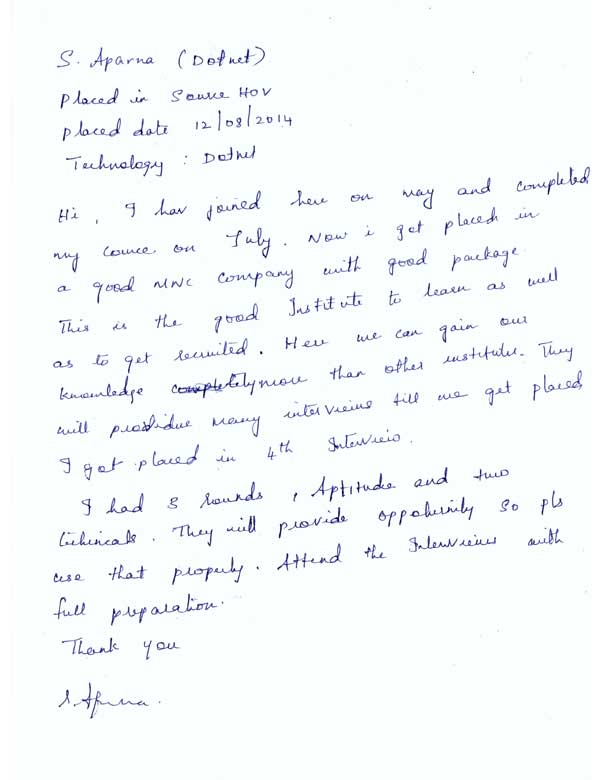 S. Aparna (Dotnet)
Placed in Source HOV
Placed date 12/08/2014
Technology : Dotnet
Hi, I hav joined here on may and completed
my cource on July. Now i got placed in
a good MNC company with good package.
This is the good Institute to learn as well
as to get recruited. Here we can gain our
knowledge more than other institutes. They
will provide many interviews till we get placed
I got placed in 4th Interview.
I had 3 rounds, Aptitude and two
technicals. They will provide oppoturnity so pls
use that properly. Attend the Interviews with
full preparation.
Thank you
S. Aparna.